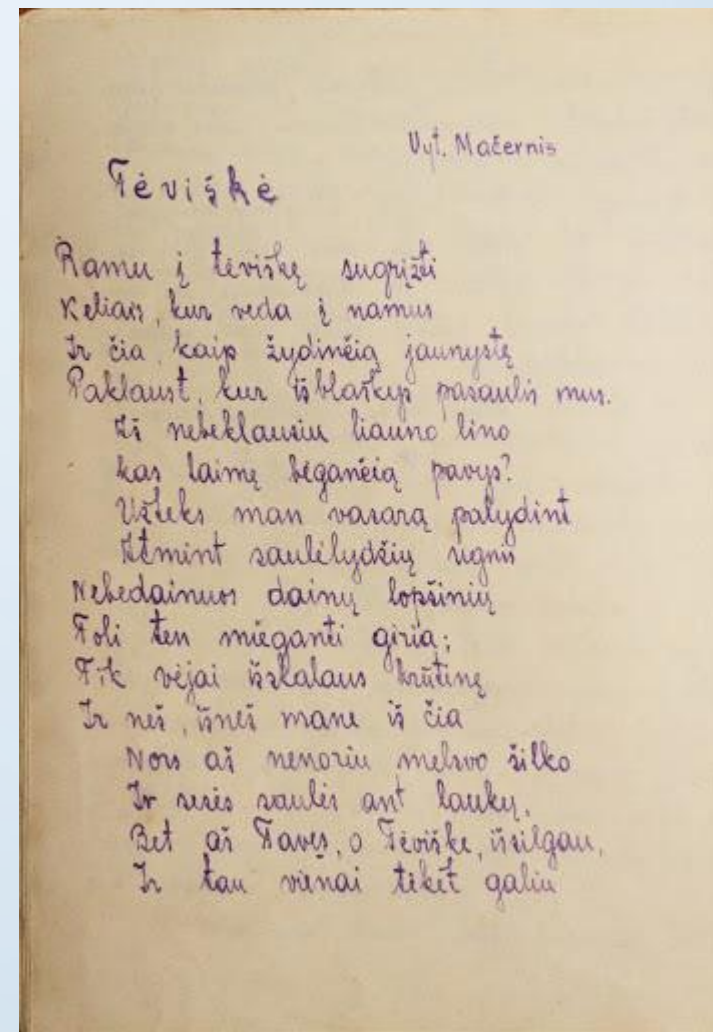 Vyt. Mačernis
Tėviškė
Ramu į tėviškę sugrįžti
Keliais, kur veda į namus
Ir čia, kaip žydinčią jaunystę
Paklaust, kur išblaškys pasaulis mus.
Aš nebeklausiu liauno lino
kas laimę bėgančią pavys?
Užteks man vasarą palydint
Atmint saulėlydžių ugnis
Nebedainuos dainų lopšinių
Toli ten mieganti giria;
Tik vėjai išskalaus krūtinę
Ir neš, išneš mane iš čia
Nors aš nenoriu melsvo šilko
Ir sesės saulės ant laukų,
Bet aš Tavęs, o Tėviške, išsilgau,
Ir tau vienai tikėt galiu